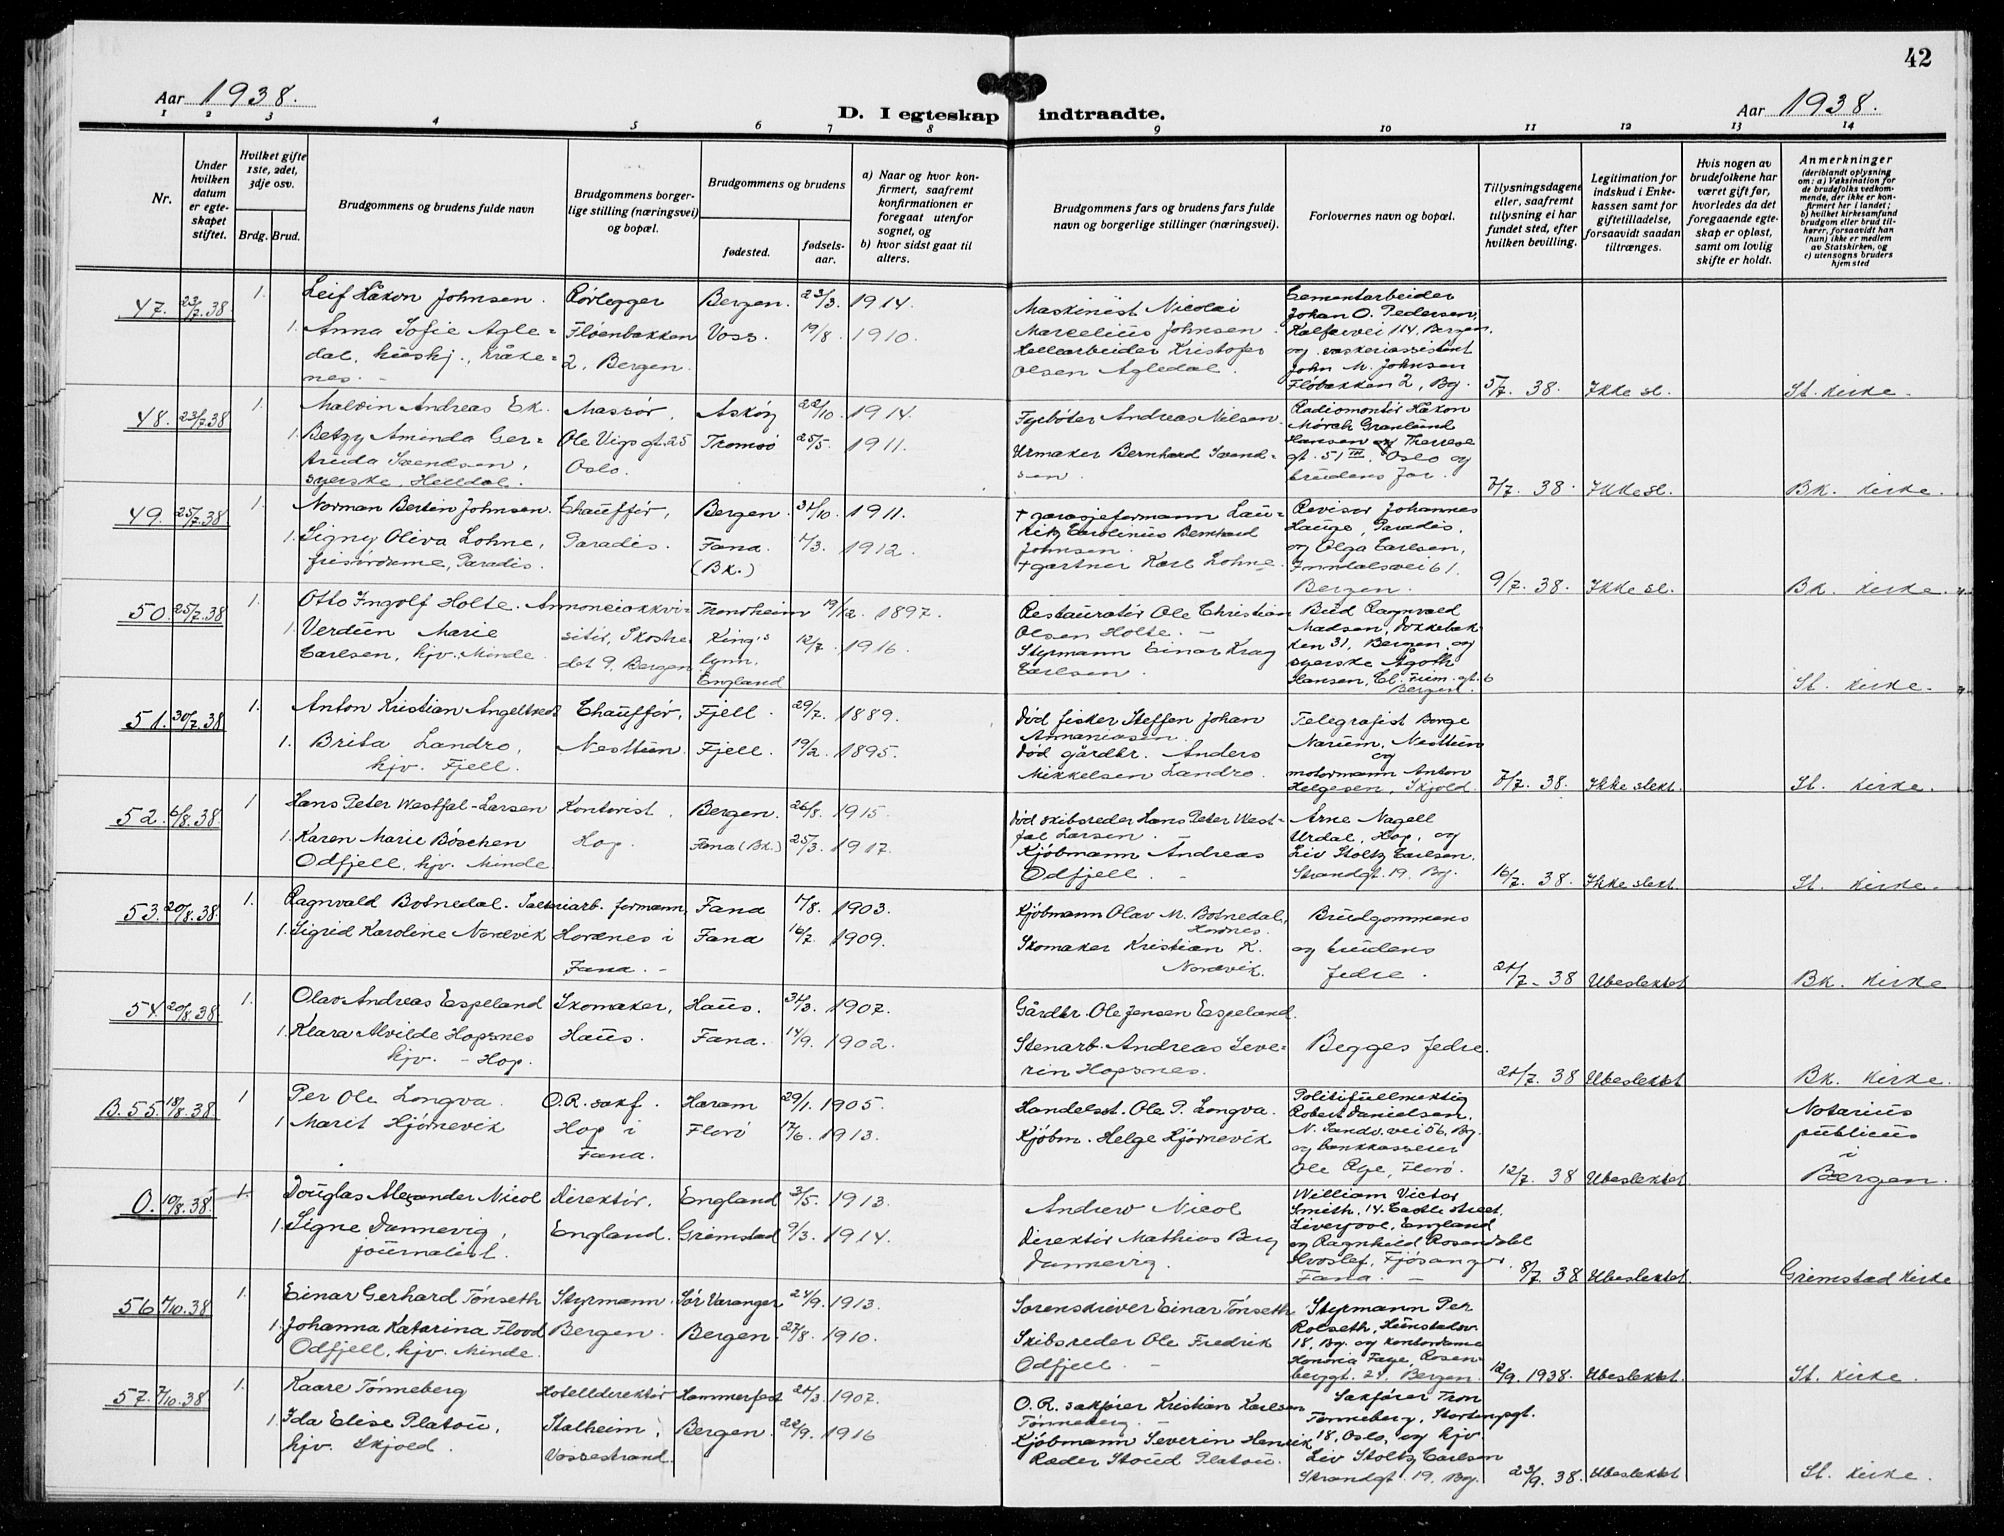 42
Aar 1938.
D. I egteskap indtraadte.
Aar 1938.
1 2 3 4 5 6 7 8 9 10 11 12 13 14
Nr.
Under hvilken datum er egteskapet stiftet.
Hvilket gifte 1ste, 2det, 3dje osv.
Brdg. Brud.
Brudgommens og brudens fulde navn
Brudgommens borgerlige stilling (næringsvei) og bopæl.
Brudgommens og brudens
fødested.
fødselsaar.
a) Naar og hvor konfirmert, saafremt konfirmationen er foregaat utenfor sognet, og
b) hvor sidst gaat til alters.
Brudgommens fars og brudens fars fulde navn og borgerlige stillinger (næringsvei).
Forlovernes navn og bopæl.
Tillysningsdagene eller, saafremt tillysning ei har fundet sted, efter hvilken bevilling.
Legitimation for indskud i Enkekassen samt for giftetilladelse, forsaavidt saadan tiltrænges.
Hvis nogen av brudefolkene har været gift før, hvorledes da det foregaaende egteskap er opløst, samt om lovlig skifte er holdt.
Anmerkninger
(deriblandt oplysning om: a) Vaksination for de brudefolks vedkommende, der ikke er konfirmert her i landet;
b) hvilket kirkesamfund brudgom eller brud tilhører, forsaavidt han (hun) ikke er medlem av Statskirken, og
c) utensogns bruders hjemsted
47. 23/7.38 1. Leif Håkon Johnsen. Rørlegger Bergen. 23/3. 1914.
1. Anna Sofie Agledal, hushj., Kråkenes. - Fløenbakken 2, Bergen. Voss. 19/8 1910.
Maskinist Nicolai Marcelius Johnsen
Hellearbeider Kristofer Olsen Agledal.
Cementarbeider Johan O. Pedersen, Kalfarvei 114, Bergen. og vaskeriassistent John M. Johnsen Fløbakken 2, Bg.
5/7. 38. Ikke sl. St. kirke.
48. 23/7.38 1. Malvin Andreas Ek. Massør, Askøy 22/10 1914.
1. Betzy Aminda Gertruda Svendsen, syerske, Helldal. Ole Vigs gt. 25 Oslo. Tromsø 25/5. 1911.
Fyrbøter Andreas Nilsen.
Urmaker Bernhard Svendsen
Radiomontør Håkon Mørch Granlund Hansen og Therese gt. 51 III. Oslo og brudens far.
7/7. 38. Ikke sl. Bk. kirke.
49. 25/7.38 1. Norman Bertin Johnsen. Chauffør, Bergen. 31/10. 1911.
1. Signy Oliva Lohne, frisørdame, Paradis. Paradis. Fana. (Bk.) 1/3. 1912.
+ garasjeformann Lauritz Carolinius Bernhard Johnsen.
+ gartner Karl Lohne.
Revisor Johannes Hauge, Paradis, og Olga Carlsen, Inndalsvei 61. Bergen.
9/7. 38. Ikke sl. Bk. kirke.
50. 25/7.38 1. Otto Ingolf Holte. Annonceakkvisitør, Skostredet 9, Bergen. Trondheim 19/12. 1897.
1. Verdun Marie Carlsen, hjv. Minde. King's lynn, England 12/7. 1916.
Restauratør Ole Christian Olsen Holte. -
Styrmann Einar Krag Carlsen.
Bud Ragnvald Madsen, Dokkebakken 31, Bergen. og syerske Agoth Hansen, Cl. Frim. gt. 6 Bergen.
St. kirke.
51. 30/7.38 1. Anton Kristian Angeltveit Chauffør, Fjell. 29/7. 1889.
1. Brita Landro, hjv. Fjell. Nesttun. Fjell. 19/2. 1895.
Død fisker Steffen Johan Annaniasen.
Død gårdbr. Anders Mikkelsen Landro.
Telegrafist Borge Narum, Nesttun og motormann Anton Helgesen, Skjold.
7/7. 38. Ikke slekt. St. kirke.
52. 6/8.38 1 Hans Peter Westfal-Larsen Kontorist. Bergen. 26/8. 1915.
1. Karen Marie Böschen Odfjell, hjv. Minde. Hop. Fana (Bk.) 25/3. 1917.
Død skibsreder Hans Peter Westfal Larsen. -
Kjøbmann Andreas Odfjell. -
Arne Nagell Urdal, Hop, og Liv Stoltz Carlsen. Strandgt. 19. Bg.
16/7. 38. Ikke slekt. St. kirke.
53. 20/8.38. 1. Ragnvald Botnedal. Salteriarb. formann, Fana 1/8. 1903.
1. Sigrid Karoline Nordvik Hordnes i Fana. - Fana 16/7 1909.
Kjøbmann Olav M. Botnedal, Hordnes.
Skomaker Kristian K. Nordvik.
Brudgommens og brudens fedre.
21/7. 38 Ubeslektet Bk. kirke
54. 20/8.38 1. Olav Andreas Espeland Skomaker, Haus. 31/3. 1907.
1. Klara Alvilde Hopsnes hjv. - Hop. Haus. Fana. 14/9. 1902.
Gårdbr. Ole Jensen Espeland.
Stenarb. Andreas Severin Hopsnes.
Begges fedre.
21/7. 38 Ubeslektet Bk. kirke.
B. 55. 18/8.38 1 Per Ole Longva. O.R. sakf. Haram 29/1. 1905.
1 Marit Hjørnevik Hop i Fana. Florø 17/6. 1913.
Handelsst. Ole P. Longva.
Kjøbm. Helge Hjørnevik
Politifullmektig Robert Danielsen, N. Sandv. vei 56, Bg. og bankkasserer Ole Rye, Florø.
12/7. 38 Ubeslektet Notarius publicus i Bergen.
0. 10/8.38. 1. Douglas Alexander Nicol Direktør. England 3/5. 1913.
1. Signe Dannevig, journalist. England. Grimstad 9/3. 1914.
Andrew Nicol
Direktør Mathias Berg Dannevig.
William Victor Smith, 14 Castle street, Liverpool, England og Ragnhild Rosendahl Hvoslef, Fjøsanger Fana. -
8/7. 38 Ubeslektet. Grimstad kirke
56. 1/10.38 1. Einar Gerhard Tønseth Styrmann. Sør Varanger 24/9. 1913.
1. Johanna Katarina Flood Odfjell, hjv. Minde. Bergen. Bergen. 27/8. 1910.
Sorenskriver Einar Tønseth
Skibsreder Ole Fredrik Odfjell. -
Styrmann Per Rolseth, Hunstadsv. 18, Bg. og kontordame Honoria Faye, Rosenbergt. 24, Bergen.
12/9. 1938. Ubeslektet. St. kirke.
57. 7/10.38 1. Kaare Tønneberg Hotelldirektør Hammerfest 21/3 1907.
1. Ida Elise Platou, hjv. Skjold. Stalheim, Vossestrand. Bergen. 22/9. 1916
O.R. sakfører Kristian Karlsen Tønneberg. -
Kjøbmann Severin Henrik Roeder Stoud Platou.
Sakfører Tron Tønneberg, Stortingsgt. 18, Oslo, og hjv. Liv Stoltz Carlsen Strandgt. 19, Bg.
23/9. 38. Ubeslektet St. kirke.